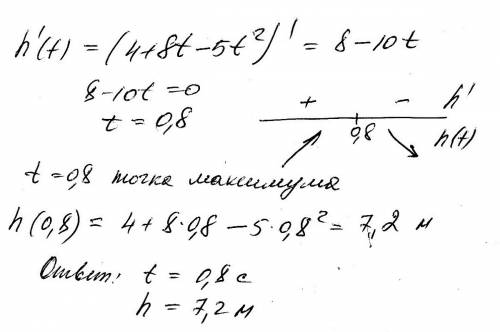 h'(t) = (4+8t-5t²)' = 8-10t
8-10t=0
t = 0,8
+ - h'
0,8 h(t)
t=0,8 точка максимума
h(0,8) = 4+8·0,8-5·0,8²= 7,2 м
Ответ: t = 0,8 с
h = 7,2 м